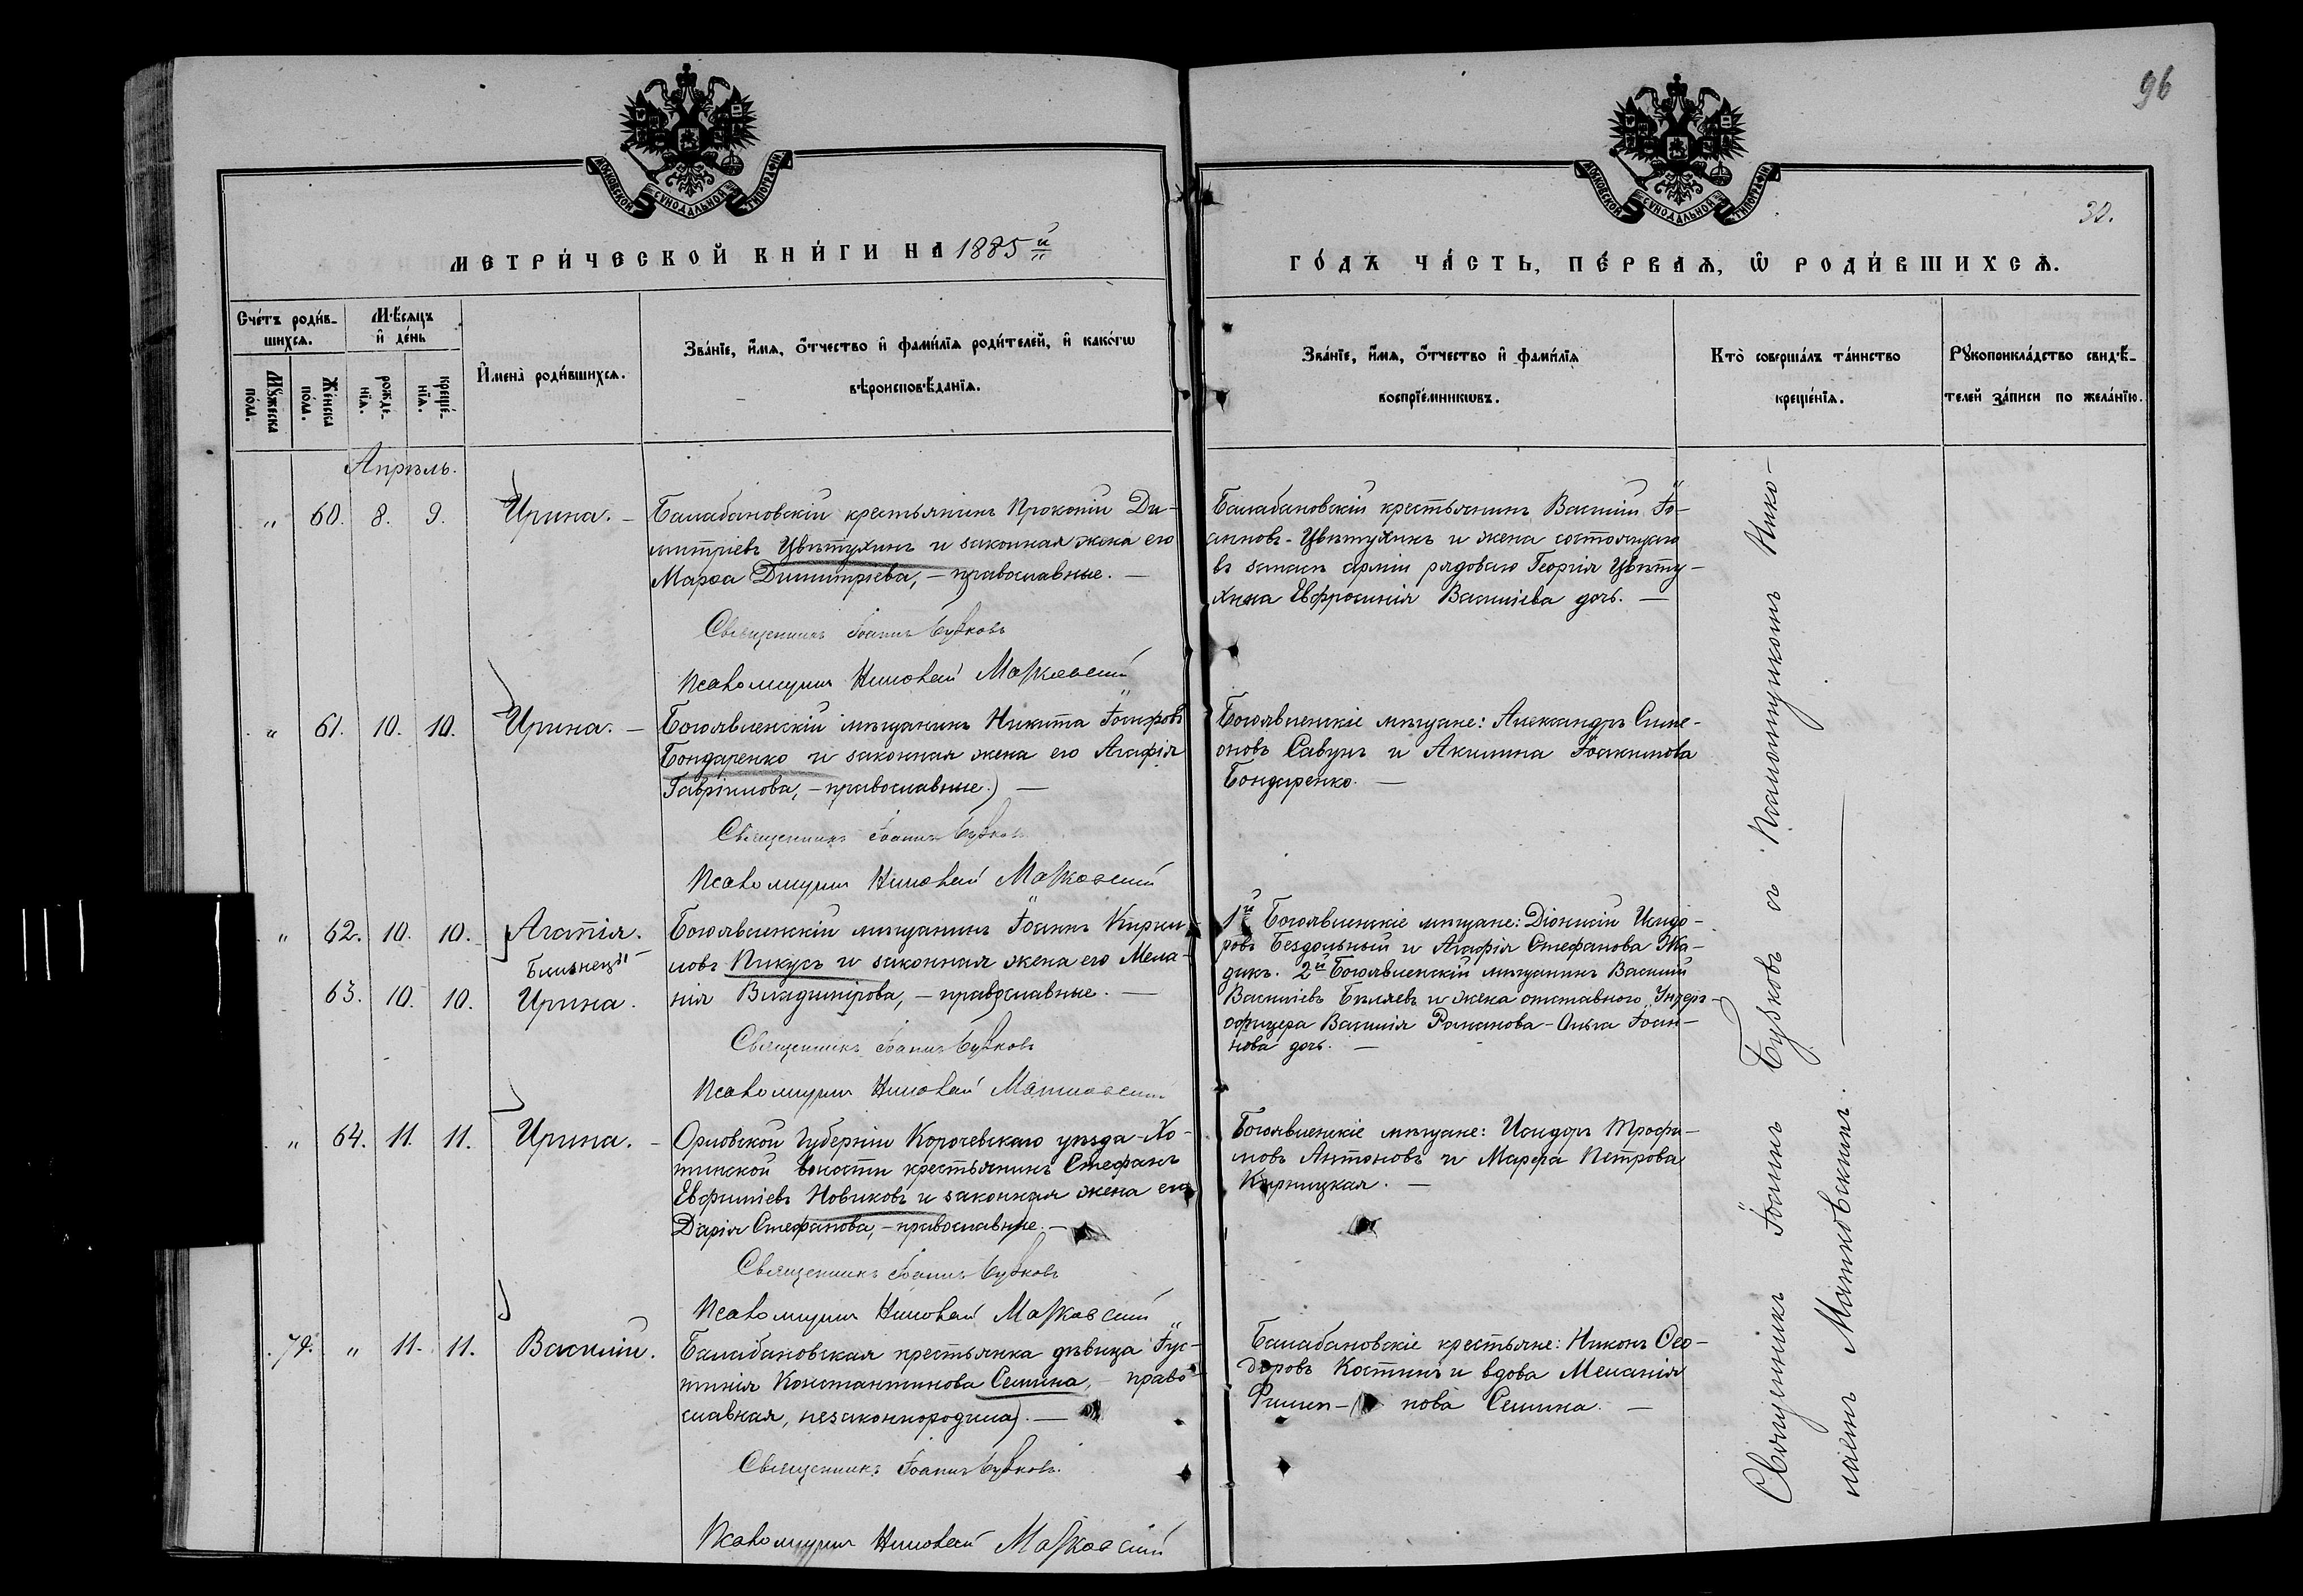 96
МОСКОВСКОЙ СѴНОДАЛЬНОЙ ТИПОГРАФІИ
МОСКОВСКОЙ СѴНОДАЛЬНОЙ ТИПОГРАФІИ
32.
МЕТРИ́ЧЕСКОЙ КНИ́ГИ НА 1885й
ГО́ДЪ ЧА́СТЬ, ПЕ́РВАѦ, Ѡ РОДИ́ВШИХСѦ.
Сче́тъ роди́в-
шихсѧ.
Мꙋжеска
по́ла.
Же́нска
по́ла.
Мѣ́сѧцъ
и҆ де́нь
рожде́-
нїѧ.
креще́-
нїѧ.
И҆мена̀ роди́вшихсѧ.
Зва́нїе, и҆́мѧ, ѻ҆́тчество и҆ фами́лїѧ роди́телей, и҆ како́гѡ
вѣроисповѣ́данїѧ.
Зва́нїе, и҆́мѧ, ѻ҆́тчество и҆ фами́лїѧ
воспрїе́мникѡвъ.
Кто̀ соверша́лъ та́инство
креще́нїѧ.
Рꙋкоприкла́дство свидѣ́-
телей за́писи по жела́нїю.
Апрѣль.
" 60. 8. 9. Ирина. –
Балабановскій крестьянинъ Прокопій Ди-
митріевъ Цвѣтухинъ и законная жена его
Марѳа Димитріева, – православные. –
Священникъ Іоаннъ Бужковъ
Псаломщикъ Николай Матковскій
Балабановскій крестьянинъ Василій Іо-
анновъ-Цвѣтухинъ и жена состоящаго
въ запасѣ арміи рядоваго Георгія Цвѣту-
хина Евфросинія Василіева дочь. –
" 61. 10. 10. Ирина. –
Богоявленскій мѣщанинъ Никита Іосифовъ
Бондаренко и законная жена его Агафія
Гавріилова, – православные. –
Священникъ Іоаннъ Бужковъ
Псаломщикъ Николай Матковскій
Богоявленскіе мѣщане: Александръ Симе-
оновъ Савунъ и Акилина Іоакимова
Бондаренко. –
" 62. 10. 10. Агапія.
Близнецы
63. 10. 10. Ирина.
Богоявленскій мѣщанинъ Іоаннъ Кирил-
ловъ Пикусъ и законная жена его Мела-
нія Владимірова, – православные. –
Священникъ Іоаннъ Бужковъ
Псаломщикъ Николай Матковскій
1й Богоявленскіе мѣщане: Діонисій Исидо-
ровъ Бездольный и Агафія Стефанова
2й Богоявленскій мѣщанинъ Василій
Василіевъ Бѣляевъ и жена отставного Ундеръ-
офицера Василія Романова – Ольга Іоан-
нова дочь. –
" 64. 11. 11. Ирина. –
Орловской Губерніи Корочевскаго уѣзда-Хо-
тинской волости крестьянинъ Стефанъ
Евфиміевъ Новиковъ и законная жена его
Дарія Стефанова, – православные. –
Священникъ Іоаннъ Бужковъ
Псаломщикъ Николай Матковскій
Богоявленскіе мѣщане: Исидоръ Трофи-
мовъ Антоновъ и Марѳа Петрова
Кирницкая. –
74. " 11. 11. Василій.
Балабановская крестьянка дѣвица Іус-
тинія Константинова Семина, – право-
славная, незаконнородила). –
Священникъ Іоаннъ Бужковъ.
Псаломщикъ Николай Матковскій
Балабановскіе крестьяне: Никонъ Ѳео-
доровъ Костинъ и вдова Меланія
Филип- пова Семина. –
Священникъ Іоаннъ Бужковъ съ Псаломщикомъ Нико-
лаемъ Матковскимъ.